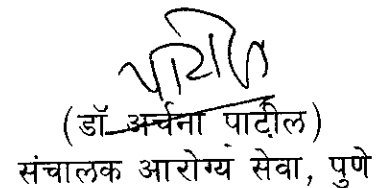 पाटील
(डॉ अर्चना पाटील)
संचालक आरोग्य सेवा, पुणे